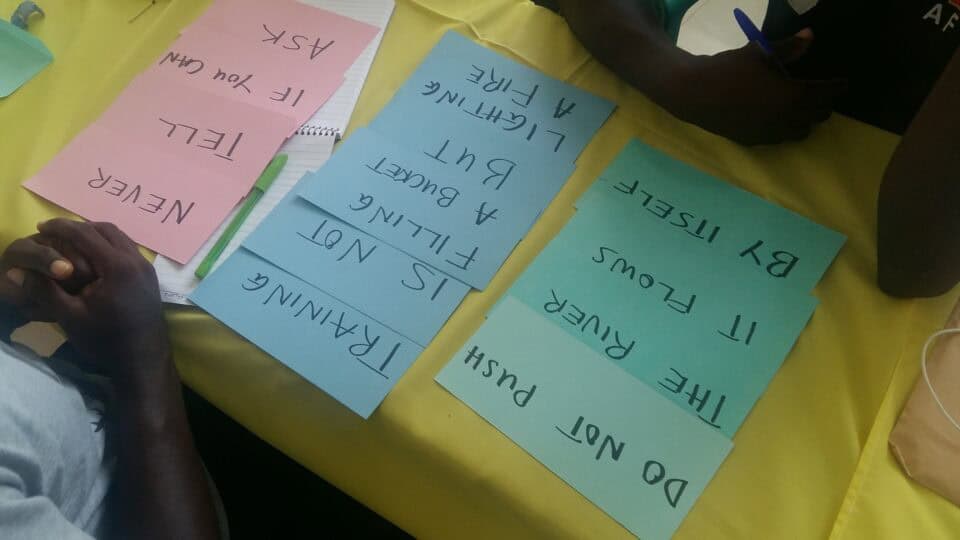 DO NOT PUSH
THE RIVER
IT FLOWS
BY ITSELF
TRAINING
IS NOT
FILLING
A BUCKET
BUT
LIGHTING
A FIRE
NEVER
TELL
IF YOU CAN
ASK